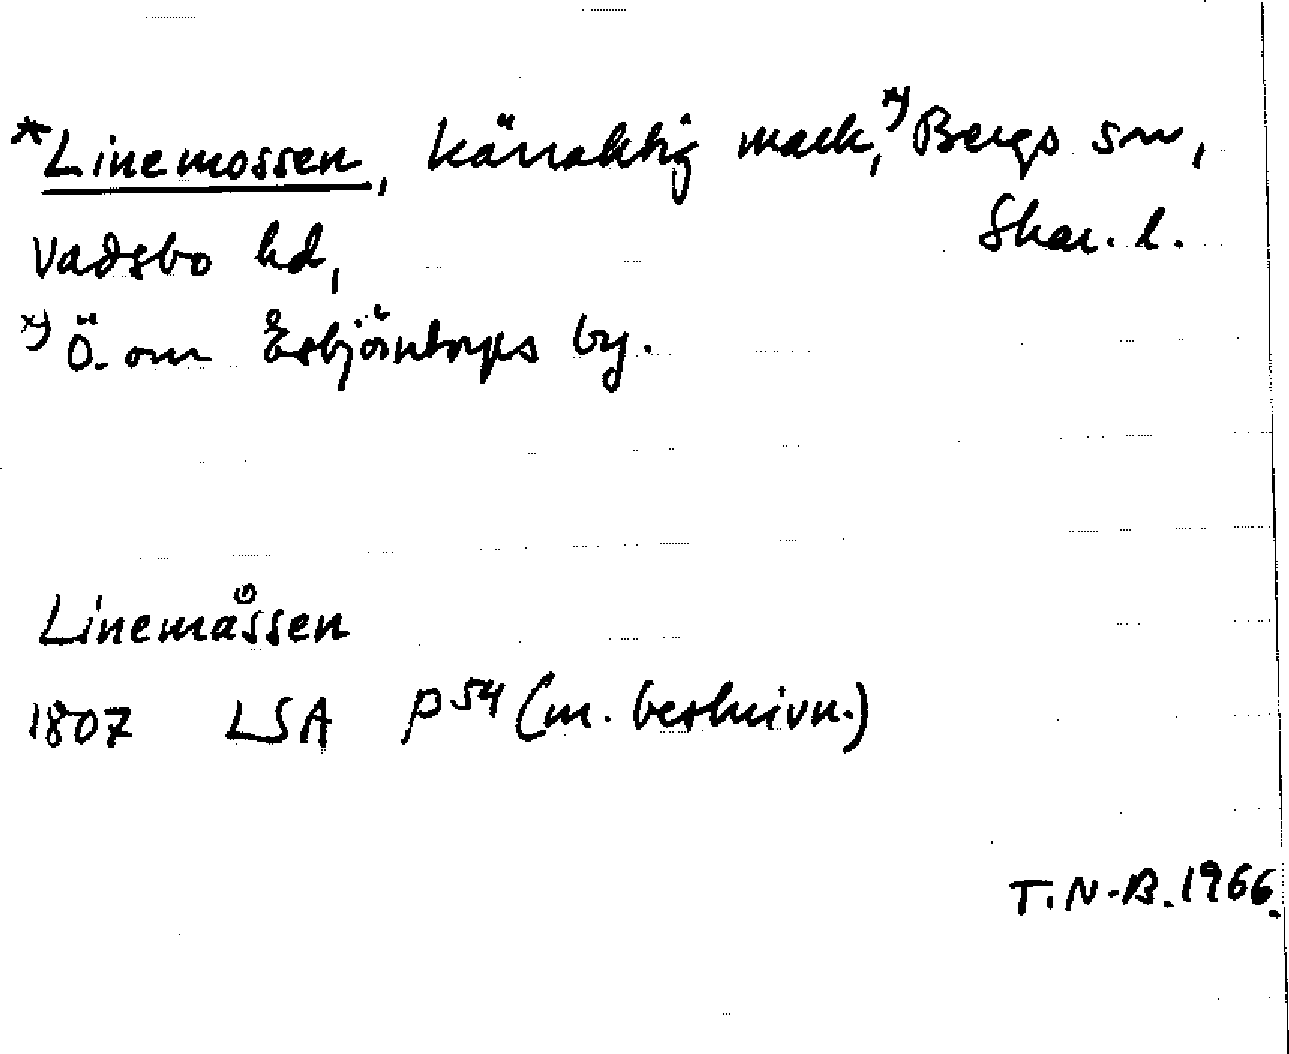 *Linemossen, kärraktig mark,ˣ⁾ Bergs sn,
Skar. l.
Vadsbo hd,
ˣ⁾ Ö. om Esbjörntorps by.
Linemåssen
1807 LSA P54 (m. beskrivn.)
T. N-B. 1966.